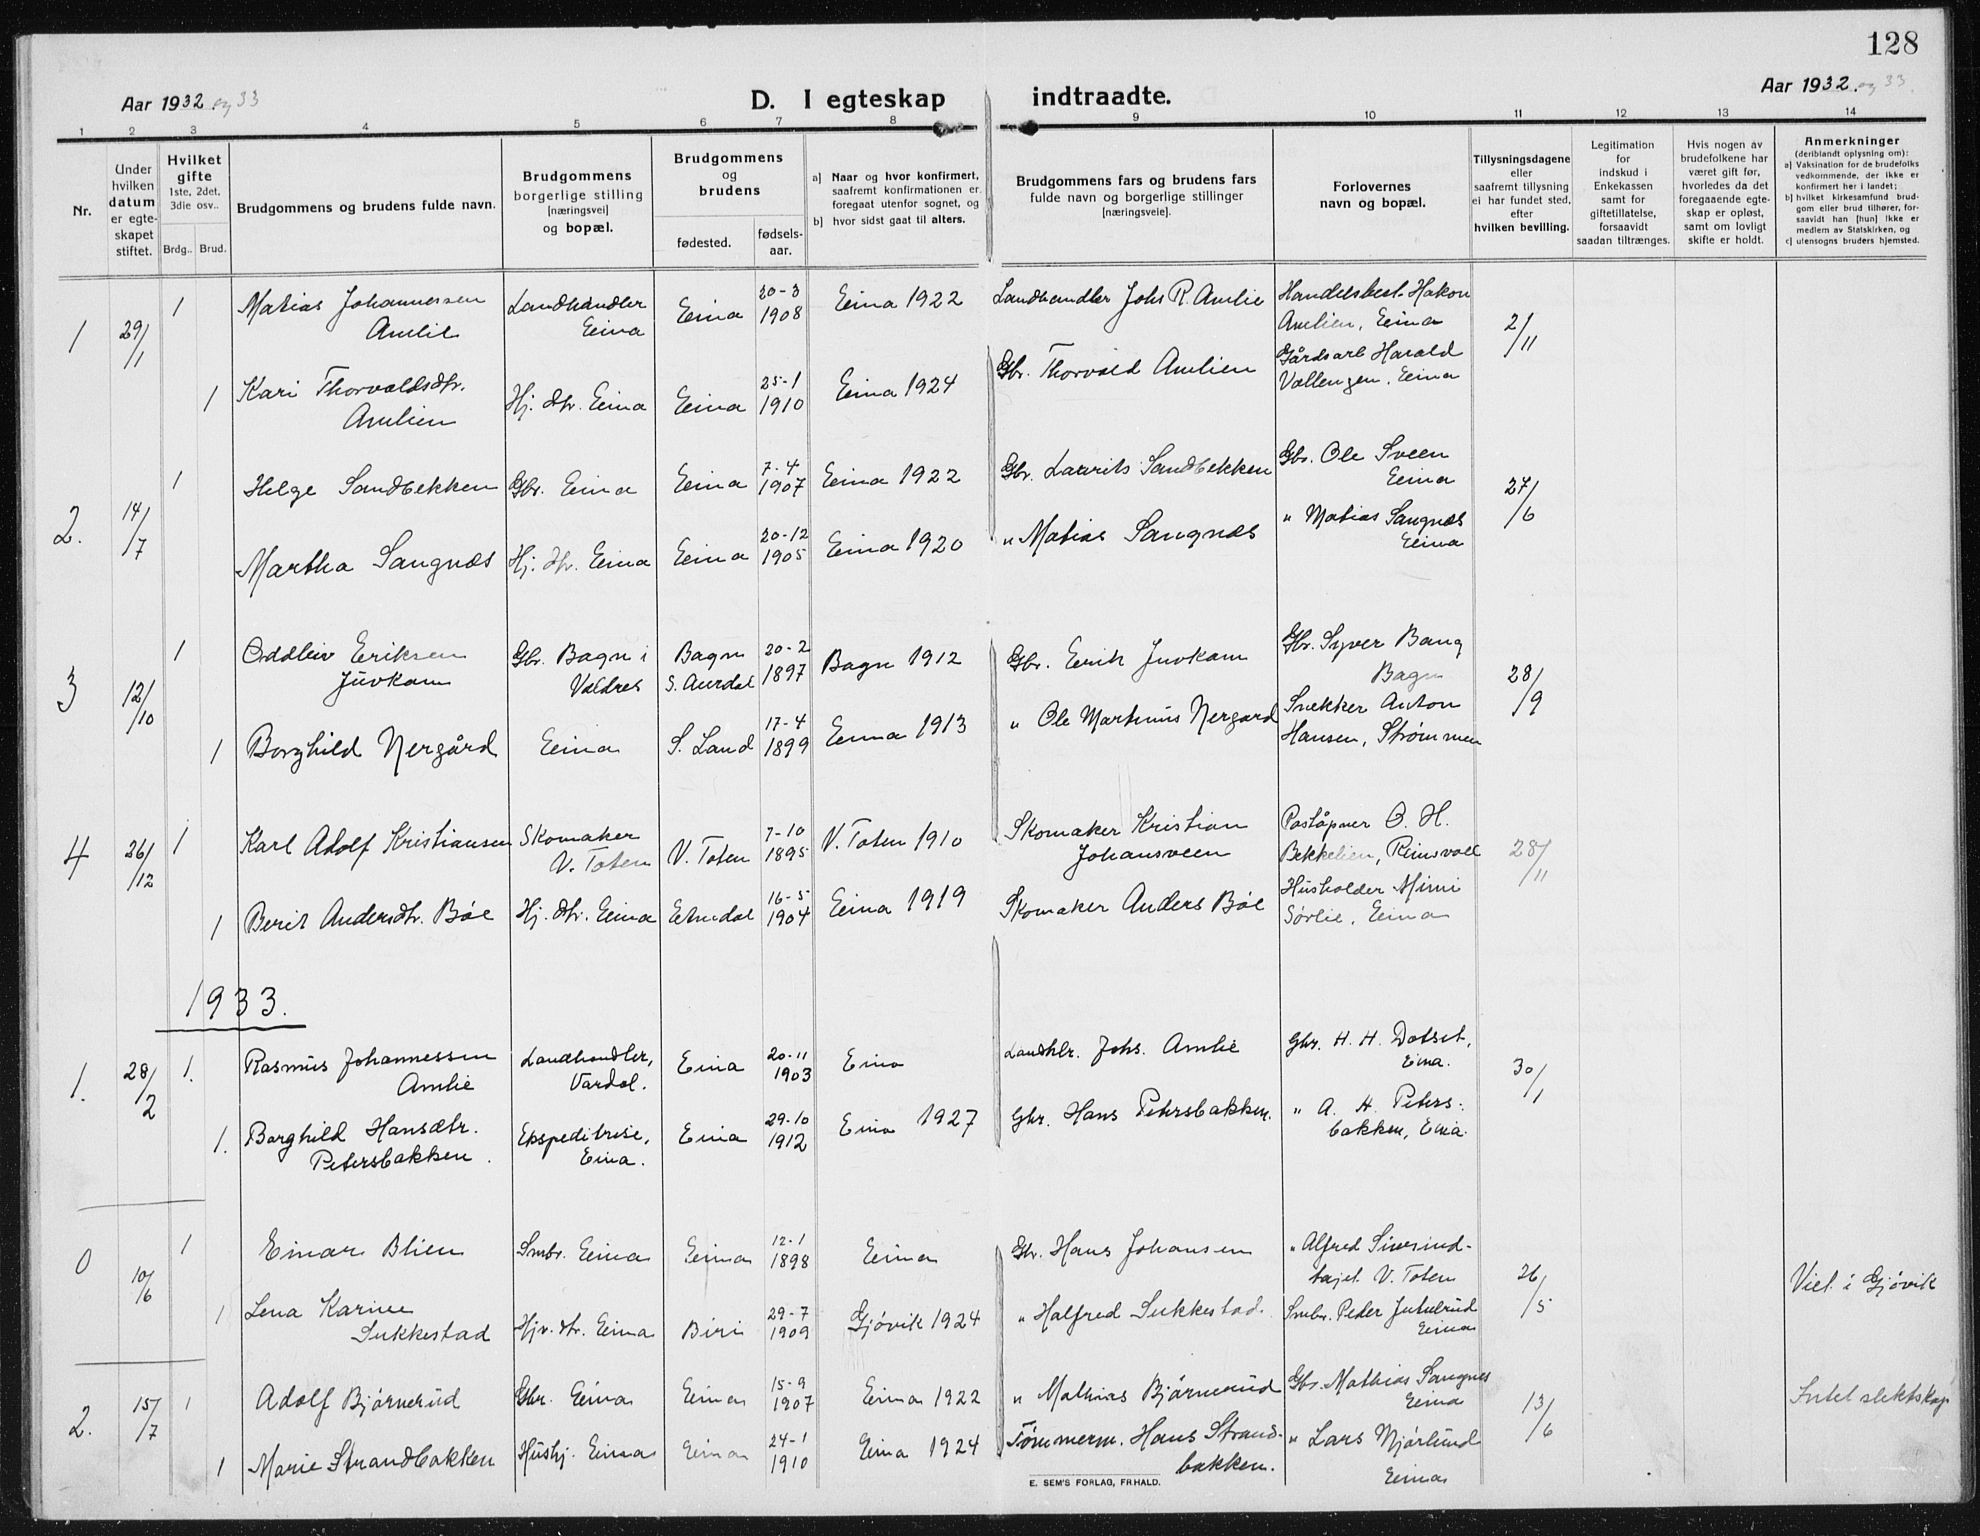 128
Aar 1932 og 33
D. I egteskap indtraadte.
Aar 1932. og 33.
1 2 3 4 5 6 7 8 9 10 11 12 13 14
Nr.
Under hvilken datum er egte-skapet stiftet.
Hvilket gifte
1ste, 2det, 3die osv..
Brdg.. Brud.
Brudgommens og brudens fulde navn.
Brudgommens borgerlige stilling [næringsvei] og bopæl.
Brudgommens og brudens
fødested.
fødsels-aar.
a] Naar og hvor konfirmert, saafremt konfirmationen er foregaat utenfor sognet, og
b] hvor sidst gaat til alters.
Brudgommens fars og brudens fars fulde navn og borgerlige stillinger [næringsveie].
Forlovernes navn og bopæl.
Tillysningsdagene eller saafremt tillysning ei har fundet sted, efter hvilken bevilling.
Legitimation for indskud i Enkekassen samt for giftetillatelse, forsaavidt saadan tiltrænges.
Hvis nogen av brudefolkene har været gift før, hvorledes da det foregaaende egte-skap er opløst, samt om lovligt skifte er holdt.
Anmerkninger
(deriblandt oplysning om):
a] Vaksination for de brudefolks vedkommende, der ikke er konfirmert her i landet;
b] hvilket kirkesamfund brud-gom eller brud tilhører, for-saavidt han [hun] ikke er medlem av Statskirken, og
c] utensogns bruders hjemsted.
1 29/1 1 Matias Johannessen Amlie Landhandler Eina Eina 20-3 1908 Eina 1922 Landhandler Johs R. Amlie Handelsbest. Hakon Amlien, Eina 21/11
1 Kari Thorvaldsdtr. Amlien Hj. dtr. Eina Eina 25-1 1910 Eina 1924 Gbr. Thorvald Amlien Gårdsarb Harald Vallengen, Eina
2. 14/7 1 Helge Sandbekken Gbr. Eina Eina 7-4 1907 Eina 1922 Gbr. Laurits Sandbekken Gbr. Ole Sveen Eina 27/6
Martha Sangnæs Hj. dtr. Eina Eina 20-12 1905 Eina 1920 " Matias Sangnæs " Matias Sangnæs Eina
3 12/10 1 Oddleiv Eriksen Juvkam Gbr. Bagn i Valdres Bagn S. Aurdal 20-2 1897 Bagn 1912 Gbr. Erik Juvkam Gbr. Syver Bang Bagn 28/9
1 Borghild Nergård Eina S. Land 17-4 1899 Eina 1913 " Ole Martinius Nergard Snekker Anton Hansen, Strømmen
4 26/12 1 Karl Adolf Kristiansen Skomaker V. Toten V. Toten 7-10 1895 V. Toten 1910 Skomaker Kristian Johansveen Poståpner O. H. Bekkelien, Reinsvoll 28/11
1 Berit Andersdtr. Bøe Hj. dtr. Eina Etnedal 16-5 1904 Eina 1919 Skomaker Anders Bøe Husholder Mimi Sørlie, Eina
1933.
1. 28/2 1. Rasmus Johannessen Amlie Landhandler, Vardal. Eina 20-11 1903 Eina Landhlr. Johs. Amlie Gbr. H. H. Dotset, Eina. 30/1
1. Borghild Hansdtr. Petersbakken. Ekspeditrise, Eina. Eina 29-10 1912 Eina 1927 Gbr. Hans Petersbakken. " A. H. Peters-bakken, Eina.
0 10/6 1 Einar Blien Smbr. Eina Eina 12-1 1898 Eina Gbr. Hans Johansen " Alfred V. Toten 26/5 Viet i Gjøvik
1 Lena Karine Sukkestad Hjv. dtr. Eina Biri 29-7 1909 Gjøvik 1924 " Halfred Sukkestad. Smbr. Peder Jutulrud Eina
2. 15/7 1 Adolf Bjørnerud Gbr. Eina Eina 15-9 1907 Eina 1922 " Mathias Bjørnerud Gbr. Mathias Sangnes Eina 13/6 Intet slektskap
1 Marie Strandbakken Hushj. Eina Eina 24-1 1910 Eina 1924 Tømmerm. Hans Strand-bakken. " Lars Mjørlund Eina
E. SEM'S FORLAG, FRHALD.